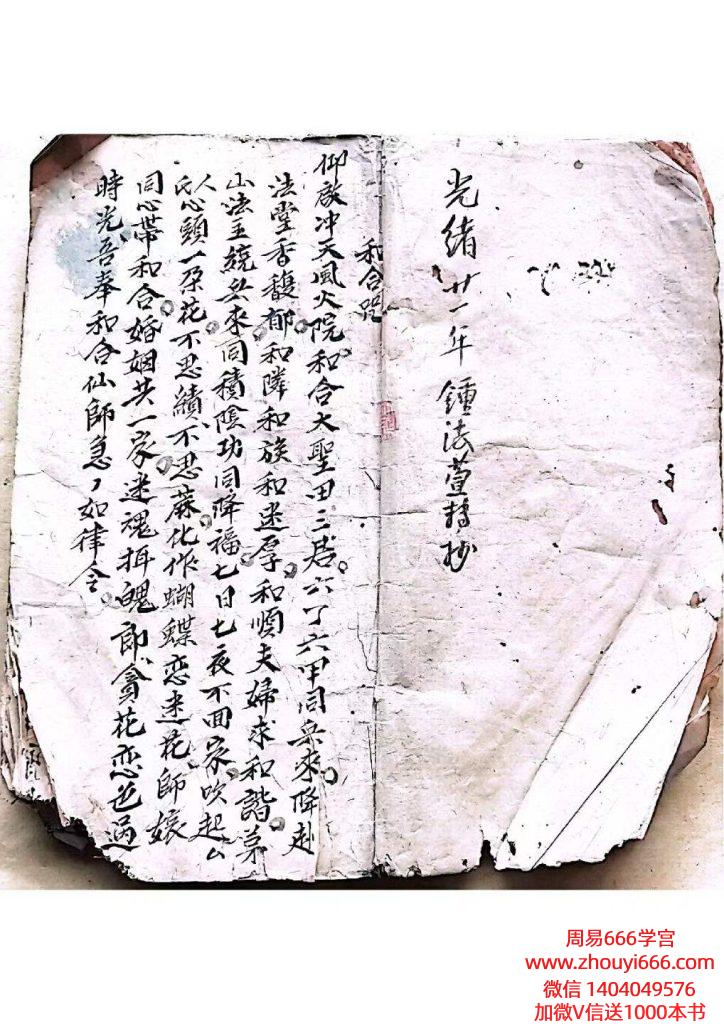 光緒廿一年鍾法萱轉抄
和合咒
仰啟冲天風火院和合大聖田三君六丁六甲同兵來降赴
法堂香馥郁和隣和族和迷厚和順夫婦求和諧茅
山法主統兵來同積陰功同降福七日七夜不回家吹起公
人氏心頭一朶花不思績不思蔴化作蝴蝶恋迷花師娘
同心帶和合婚姻共一家迷魂挕魄郎貪花恋色過
時光吾奉和合仙師急々如律令
周易666学宫
www.zhouyi666.com
微信 1404049576
加微V信送1000本书